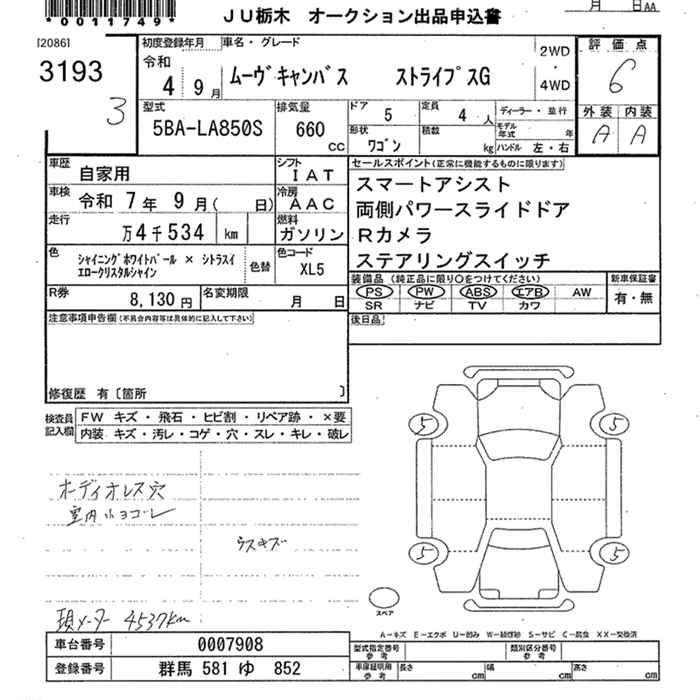 *0011749*
JU栃木 オークション出品申込書
月 日AA
[2086]
3193
3
初度登録年月
令和
4 9月
車名・グレード
ムーヴキャンバス ストライプスG
2WD
・
4WD
評価点
6
外装 内装
A A
型式
5BA-LA850S
排気量
660
cc
ドア
5
定員
4 人
形状
ワゴン
積載
kg
ディーラー・並行
モデル年式 年
ハンドル 左・右
車歴
自家用
シフト
IAT
車検
令和 7年 9月( 日)
冷房
AAC
走行
万4千534 km
燃料
ガソリン
色
シャイニングホワイトパール × シトラスイ
エロークリスタルシャイン
色替
色コード
XL5
R券
8,130円
名変期限
月 日
セールスポイント(正常に機能するものに限ります)
スマートアシスト
両側パワースライドドア
Rカメラ
ステアリングスイッチ
装備品 (純正品に限り○をつけてください)
PS PW ABS エアB AW
SR ナビ TV カワ
新車保証書
有・無
後日品
注意事項申告欄(不具合内容等は具体的に記入して下さい)
修復歴 有〔箇所 〕
検査員
記入欄
FW キズ・飛石・ヒビ割・リペア跡・×要
内装 キズ・汚レ・コゲ・穴・スレ・キレ・破レ
オーディオレス穴
室内小ヨゴレ
ウスキズ
現メーター 4537km
5
5
5
5
スペア
A-キズ E-エクボ U-凹み W-補修跡 S-サビ C-腐食 XX-交換済
車台番号
0007908
登録番号
群馬 581 ゆ 852
型式指定番号
参考
類別区分番号
参考
車庫証明用
参考
長さ cm
幅 cm
高さ cm